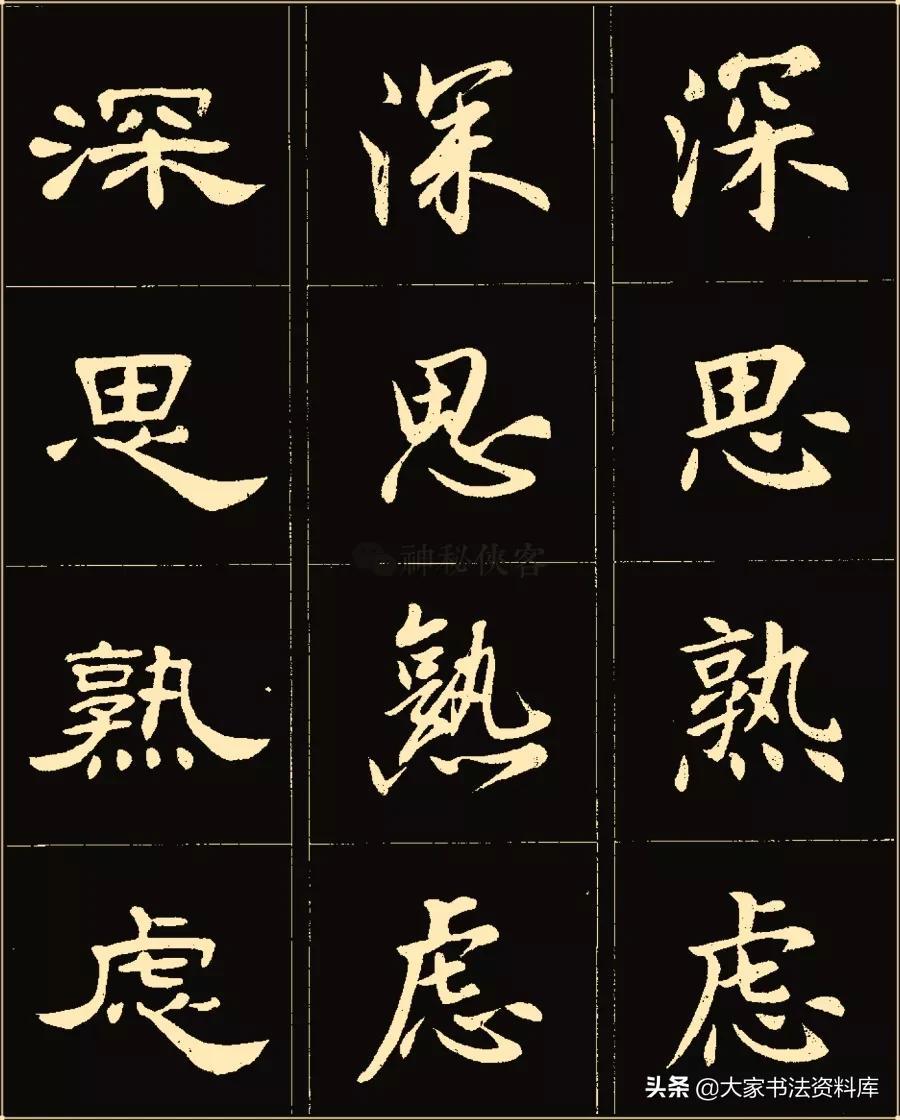 深思熟虑
深思熟虑
深思熟虑
神秘俠客
头条 @大家书法资料库